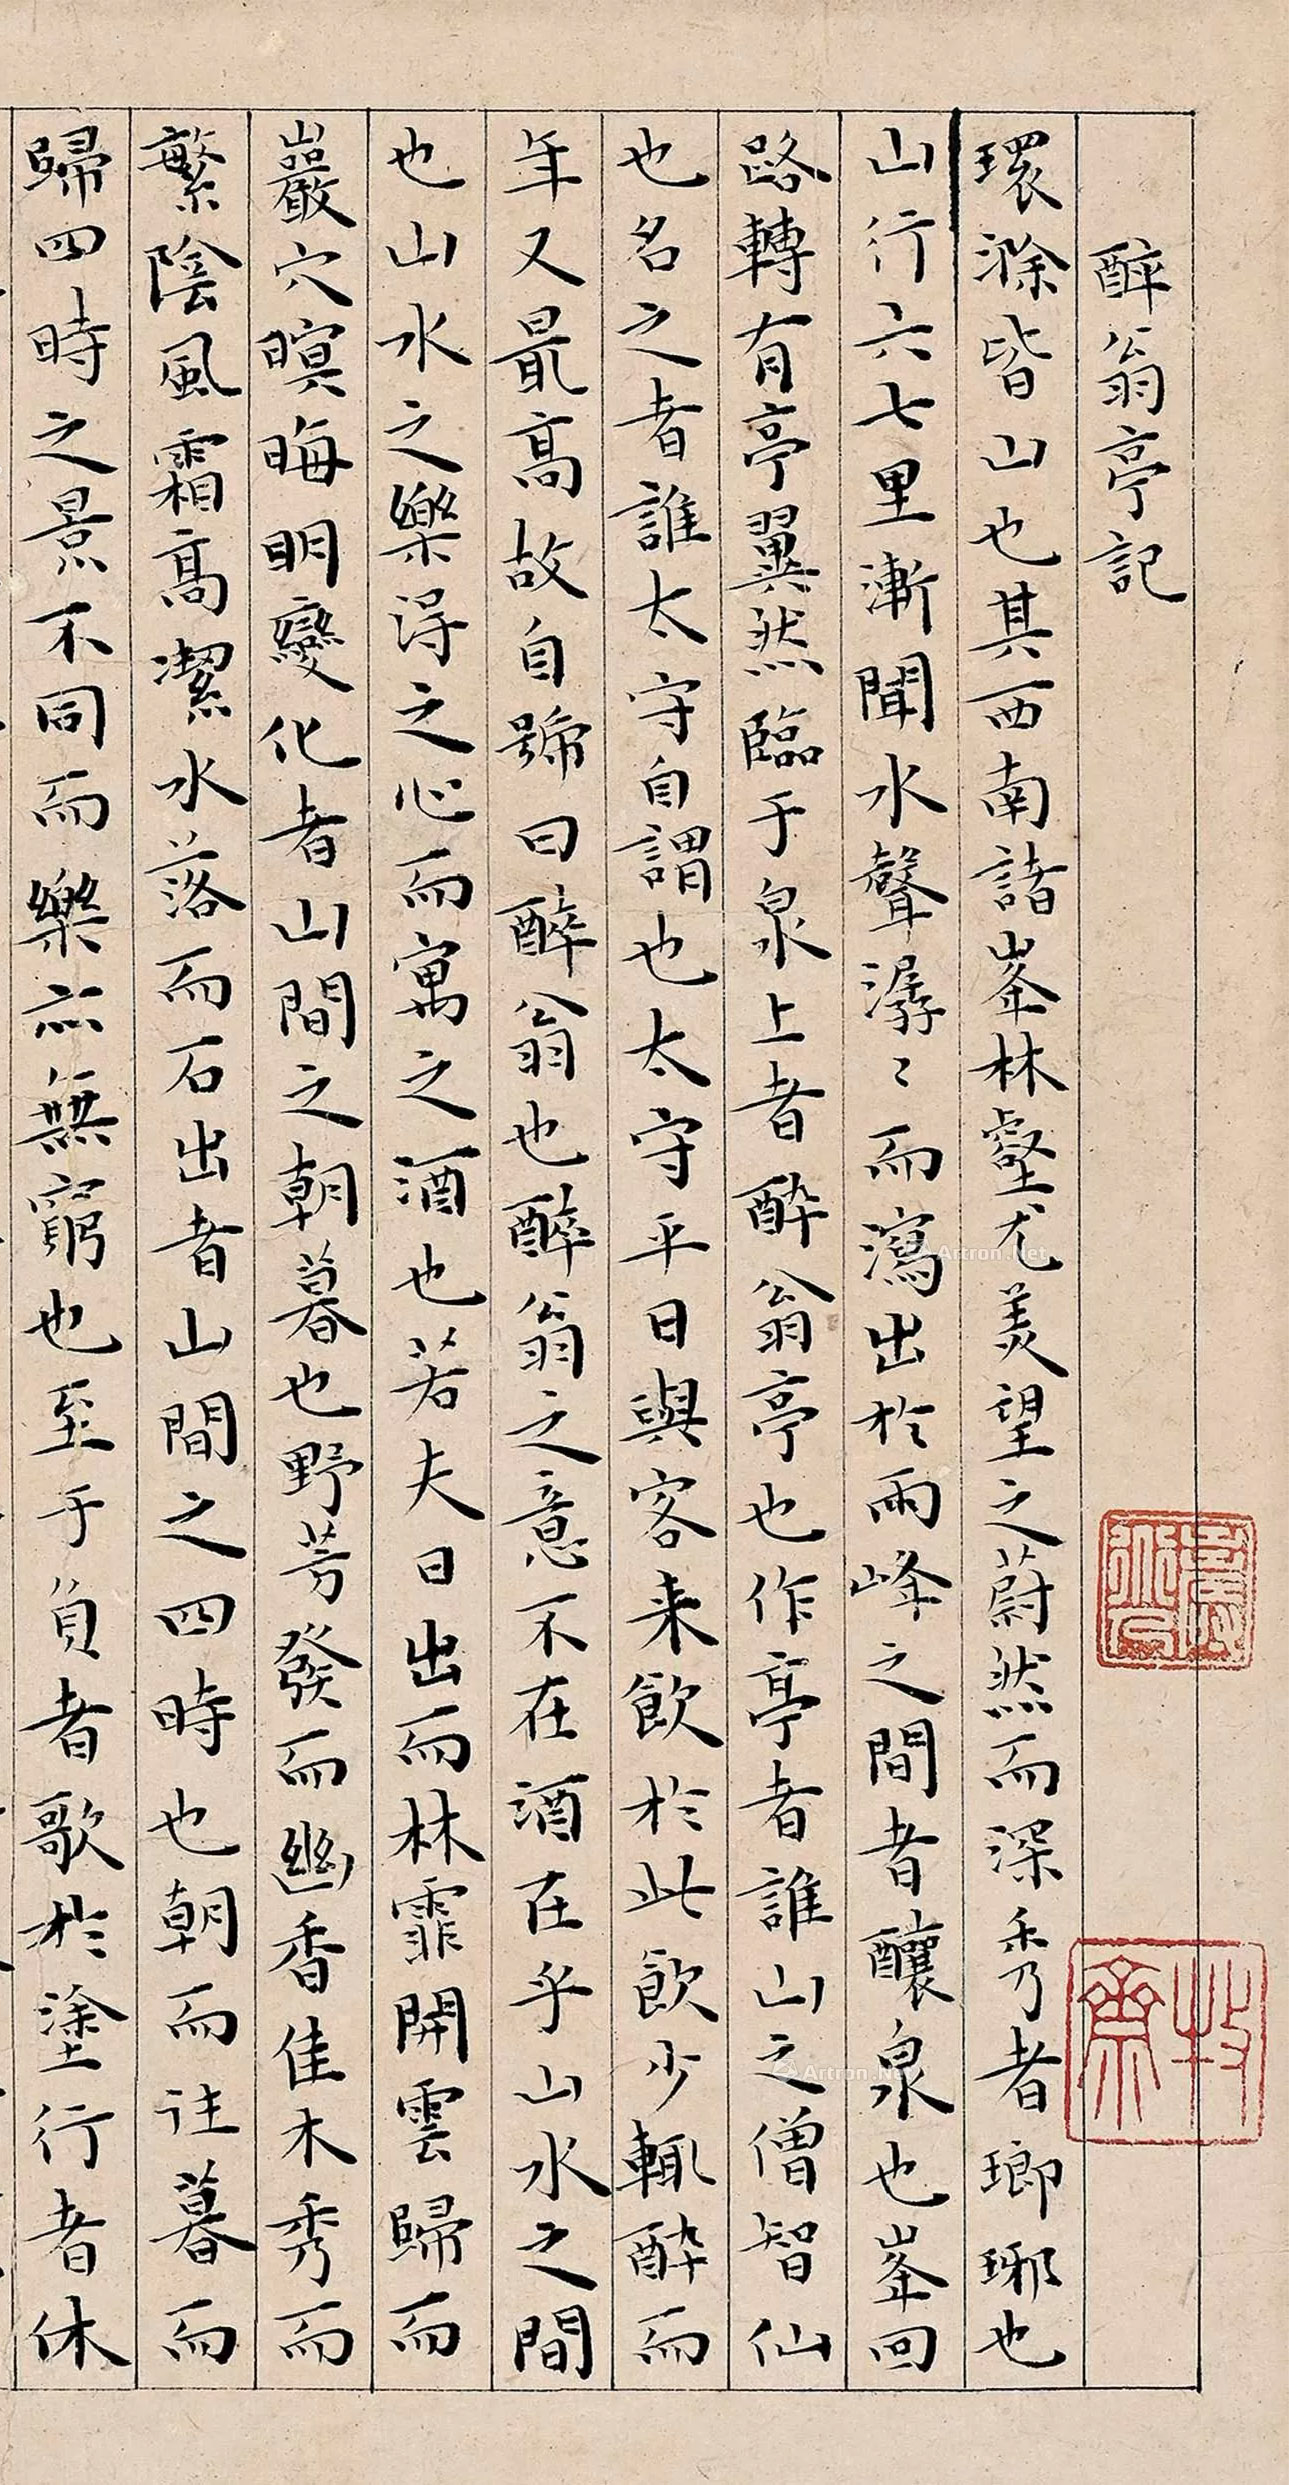 醉翁亭記
環滁皆山也其西南諸峯林壑尤美望之蔚然而深秀者瑯琊也
山行六七里漸聞水聲潺〻而瀉出於兩峰之間者釀泉也峯回
路轉有亭翼然臨于泉上者醉翁亭也作亭者誰山之僧智仙
也名之者誰太守自謂也太守平日與客来飲於此飲少輒醉而
年又最高故自號曰醉翁也醉翁之意不在酒在乎山水之間
也山水之樂得之心而寓之酒也若夫日出而林霏開雲歸而
巖穴暝晦明變化者山間之朝暮也野芳發而幽香佳木秀而
繁陰風霜高潔水落而石出者山間之四時也朝而往暮而
歸四時之景不同而樂亦無窮也至于負者歌於塗行者休
Artron.Net
Artron.Net